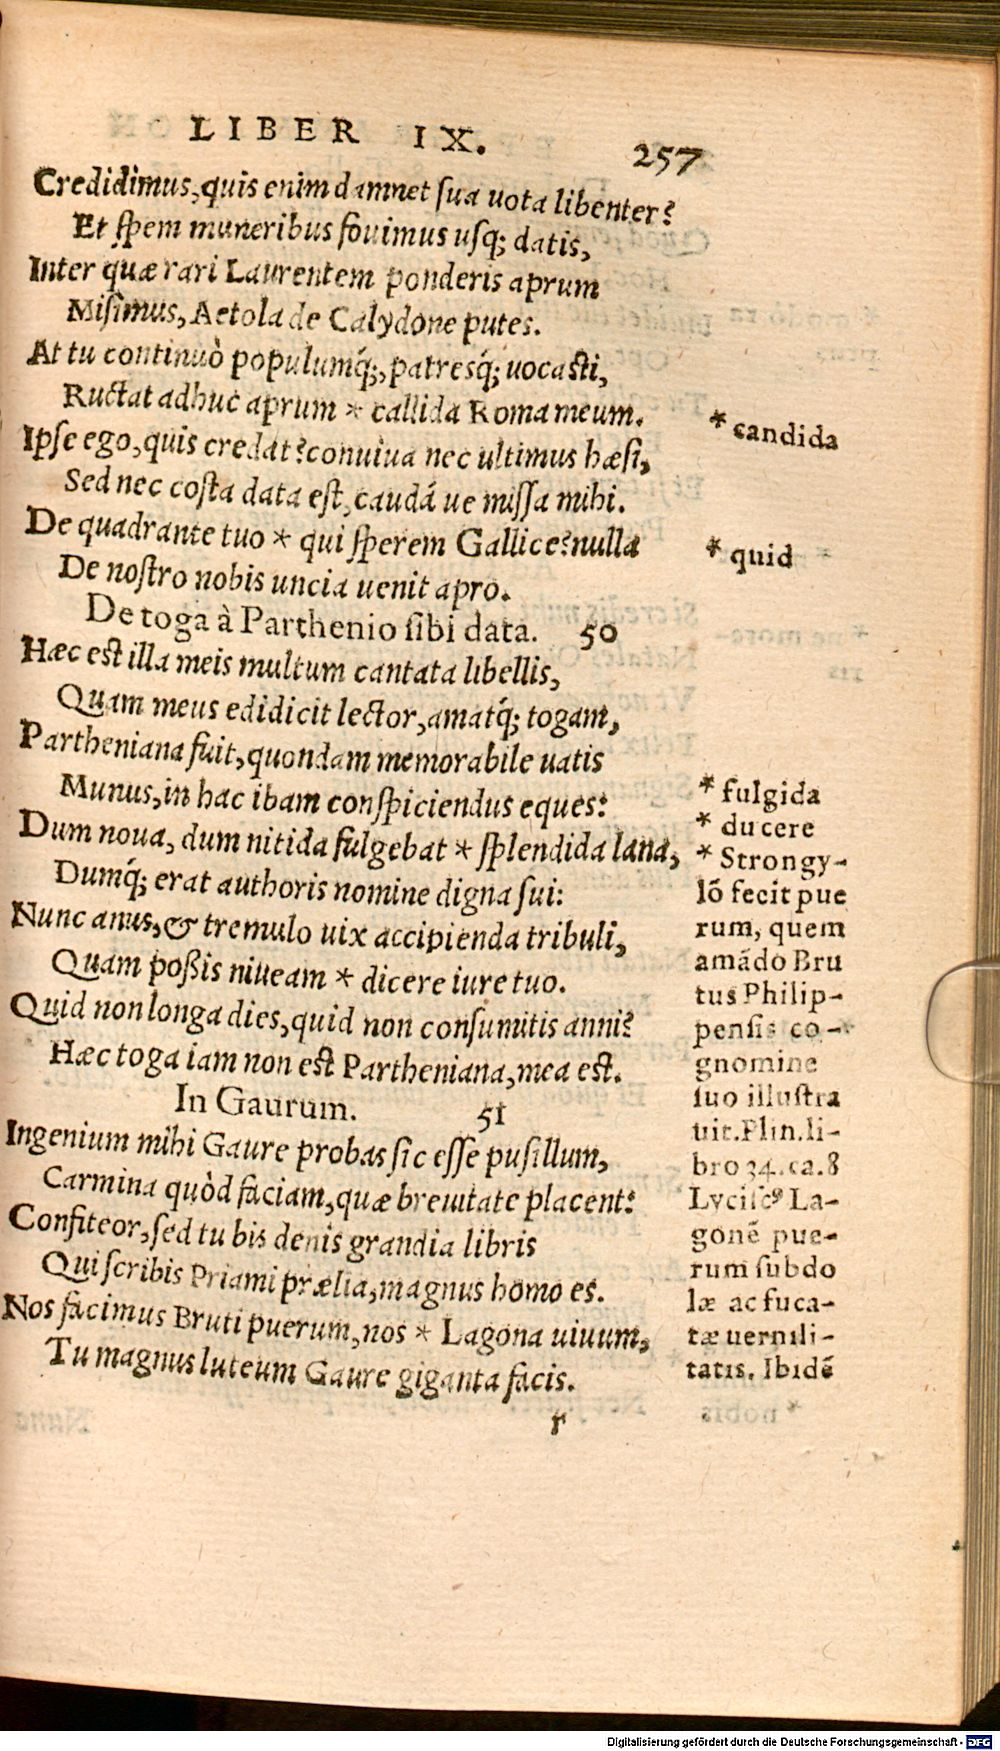 LIBER IX. 257
Credidimus, quis enim damnet sua uota libenter?
Et spem muneribus fouimus usq; datis,
Inter quæ rari Laurentem ponderis aprum
Misimus, Aetola de Calydone putes.
At tu continuò populumq́;, patresq́; uocasti,
Ructat adhuc aprum * callida Roma meum.
Ipse ego, quis credat? conuiua nec ultimus hæsi,
Sed nec costa data est, caudá ue missa mihi.
De quadrante tuo * qui sperem Gallice? nulla
De nostro nobis uncia uenit apro.
De toga à Parthenio sibi data. 50
Hæc est illa meis multum cantata libellis,
Quam meus edidicit lector, amatq́; togam,
Partheniana fuit, quondam memorabile uatis
Munus, in hac ibam conspiciendus eques:
Dum noua, dum nitida fulgebat * splendida lana,
Dumq́; erat authoris nomine digna sui:
Nunc anus, & tremulo uix accipienda tribuli,
Quam poßis niueam * dicere iure tuo.
Quid non longa dies, quid non consumitis anni?
Hæc toga iam non est Partheniana, mea est.
In Gaurum. 51
Ingenium mihi Gaure probas sic esse pusillum,
Carmina quòd faciam, quæ breuitate placent:
Confiteor, sed tu bis denis grandia libris
Qui scribis Priami prælia, magnus homo es.
Nos facimus Bruti puerum, nos * Lagona uiuum,
Tu magnus luteum Gaure giganta facis.
r
* candida
* quid
* fulgida
* ducere
* Strongy-
lõ fecit pue
rum, quem
amãdo Bru
tus Philip-
pensis co-
gnomine
suo illustra
uit. Plin. li-
bro 34. ca. 8
Lycisc⁹ La-
gonẽ pue-
rum subdo
læ ac fuca-
tæ uernili-
tatis. Ibidẽ
Digitalisierung gefördert durch die Deutsche Forschungsgemeinschaft - DFG